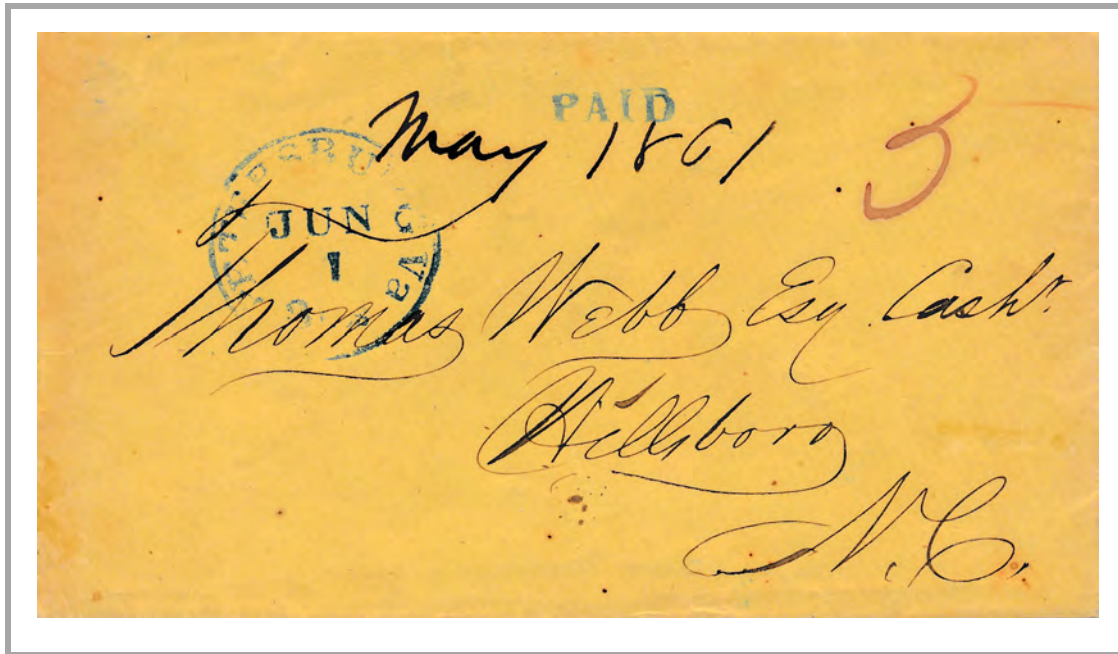 PAID
May 1861
5
PETERSBURG Va
JUN
1
Thomas Webb Esq. Cashr.
Hillsboro
N.C.